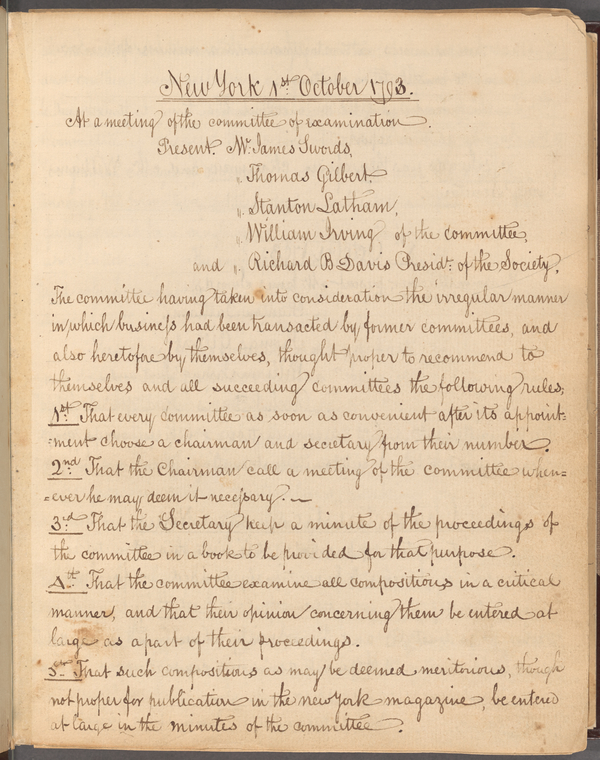 New York 1st October 1793.
At a meeting of the committee of examination.
Present. Mr. James Swords,
„ Thomas Gilbert.
„ Stanton Latham,
„ William Irving of the committee,
and „ Richard B Davis Presidt. of the Society.
The committee having taken into consideration the irregular manner
in which business had been transacted by former committees, and
also heretofore by themselves, thought proper to recommend to
themselves and all succeeding committees the following rules;
1st. That every committee as soon as convenient after its appoint-
-ment choose a chairman and secretary from their number.
2nd. That the Chairman call a meeting of the committee when=
=ever he may deem it necessary. —
3.d That the Secretary keep a minute of the proceedings of
the committee in a book to be provided for that purpose.
4th. That the committee examine all compositions in a critical
manner, and that their opinion concerning them be entered at
large as a part of their proceedings.
5th. That such compositions as may be deemed meritorious, though
not proper for publication in the new york magazine, be entered
at large in the minutes of the committee.